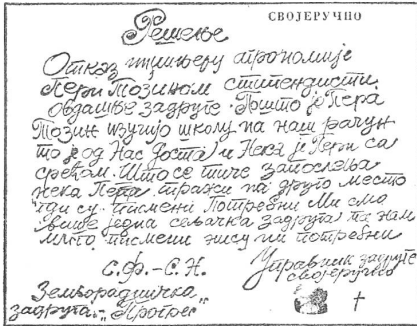 СВОЈЕРУЧНО
Решење
Отказ инжињеру агрономије
Пери Тозином стипендисти
овдашње задруге. Пошто је Пера
Тозин изучио школу на наш рачун
то је од Нас доста и Нека је Пери са
срећом. Што се тиче запослења
нека Пера тражи на друго место
гди су писмени Потребни Ми смо
више једна сељачка задруга па нам
млого писмени нису ни потребни
С.Ф.-С.Н.
Управник задруге
својеручно
Земљорадничка
задруга „Прогрес"